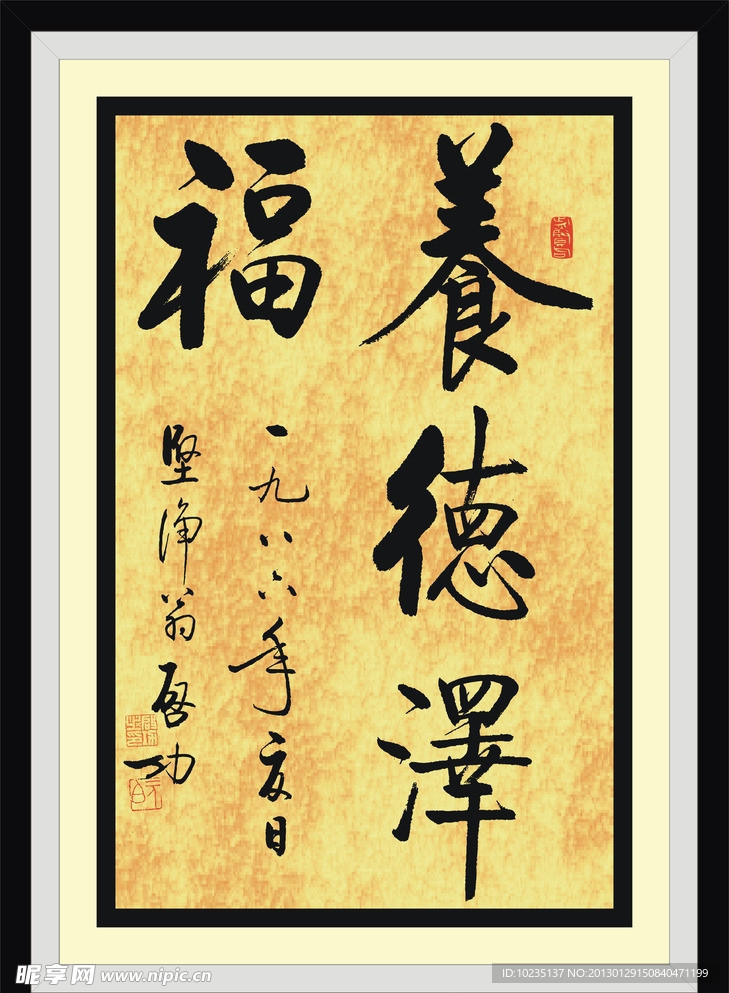 養德澤
福
一九八六年夏日
坚净翁启功
昵享网 www.nipic.cn
ID:10235137 NO:20130129150840471199